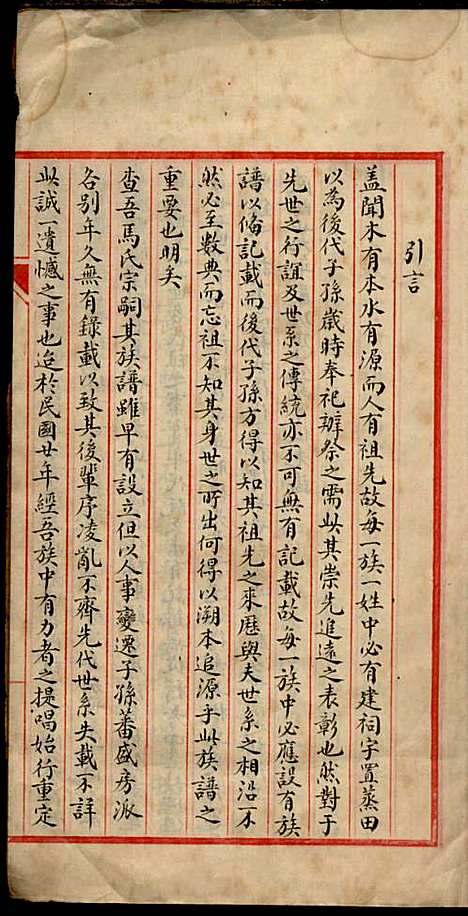 引言
蓋聞木有本水有源而人有祖先故每一族一姓中必有建祠宇置蒸田
以為後代子孫歲時奉祀辦祭之需此其崇先追遠之表彰也然對于
先世之行誼及世系之傳統亦不可無有記載故每一族中必應設有族
譜以俻記載而後代子孫方得以知其祖先之來歷與夫世系之相沿不
然必至数典而忘祖不知其身世之所出何得以溯本追源乎此族譜之
重要也明矣
查吾馬氏宗嗣其族譜雖早有設立但以人事變遷子孫蕃盛房派
各别年久無有錄載以致其後輩序凌亂不齊先代世系失載不詳
此誠一遺憾之事也迨於民國廿年經吾族中有力者之提唱始行重定